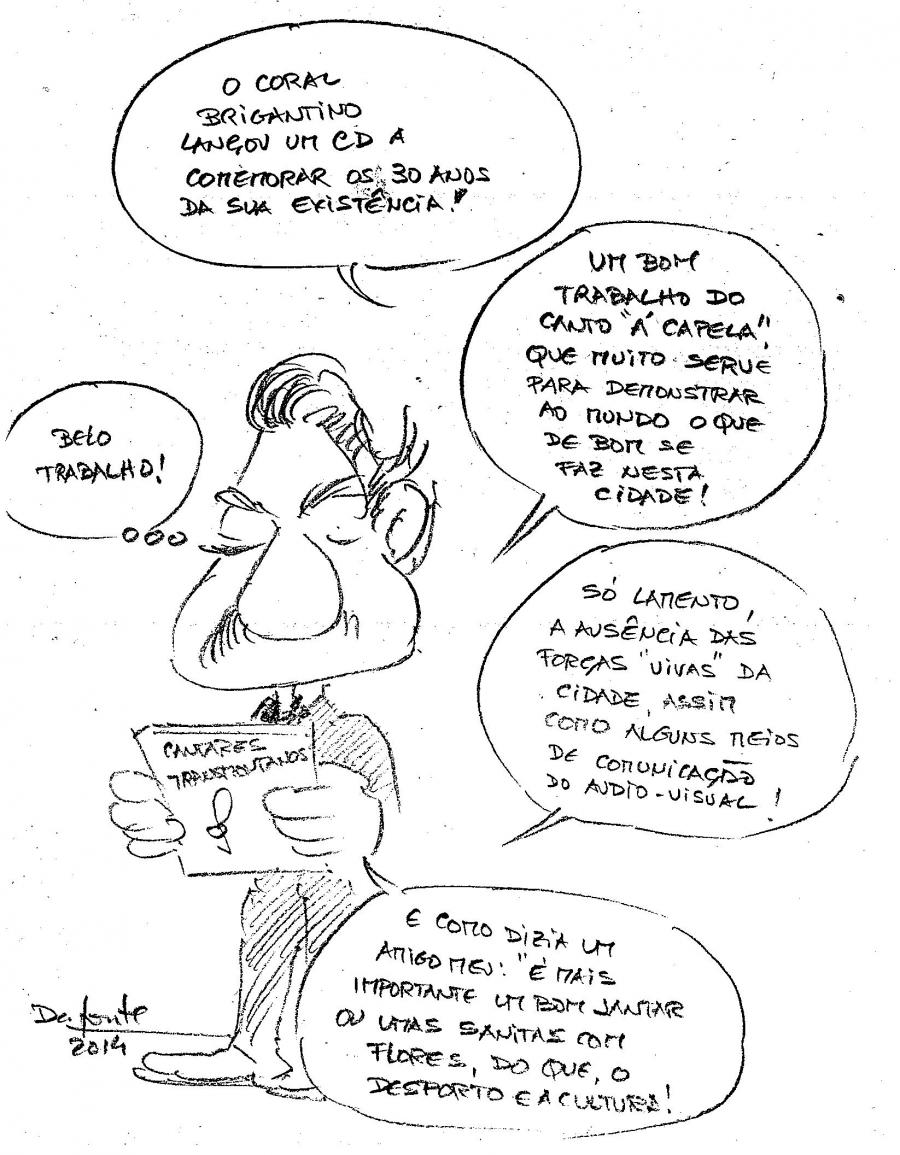 O CORAL
BRIGANTINO
LANÇOU UM CD A
COMEMORAR OS 30 ANOS
DA SUA EXISTÊNCIA!
UM BOM
TRABALHO DO
CANTO "Á CAPELA",
QUE MUITO SERVE
PARA DEMONSTRAR
AO MUNDO O QUE
DE BOM SE
FAZ NESTA
CIDADE!
BELO
TRABALHO!
SÓ LAMENTO,
A AUSÊNCIA DAS
FORÇAS "VIVAS" DA
CIDADE, ASSIM
COMO ALGUNS MEIOS
DE COMUNICAÇÃO
DO AUDIO-VISUAL!
CANTARES
TRANSMONTANOS
E COMO DIZIA UM
AMIGO MEU: "É MAIS
IMPORTANTE UM BOM JANTAR
OU UMAS SANITAS COM
FLORES, DO QUE, O
DESPORTO E A CULTURA!
Dafonte
2014